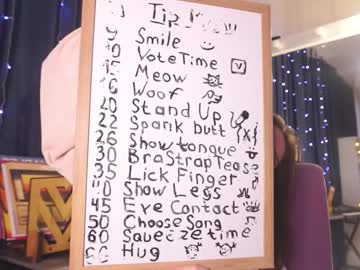 Tip
5 Smile
10 VoteTime
15 Meow
16 Woof
20 Stand Up
22 Spank butt
26 Show tongue
30 BraStrapTease
35 Lick Finger
40 Show Legs
45 Eye Contact
50 Choose Song
60 Squeeze time
Hug